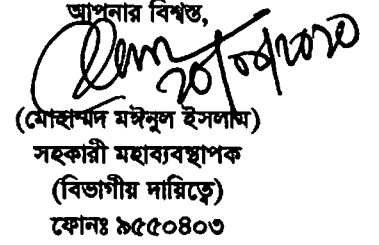 আপনার বিশ্বস্ত,
(মোহাম্মদ মঈনুল ইসলাম)
সহকারী মহাব্যবস্থাপক
(বিভাগীয় দায়িত্বে)
ফোনঃ ৯৫৫০৪০৩